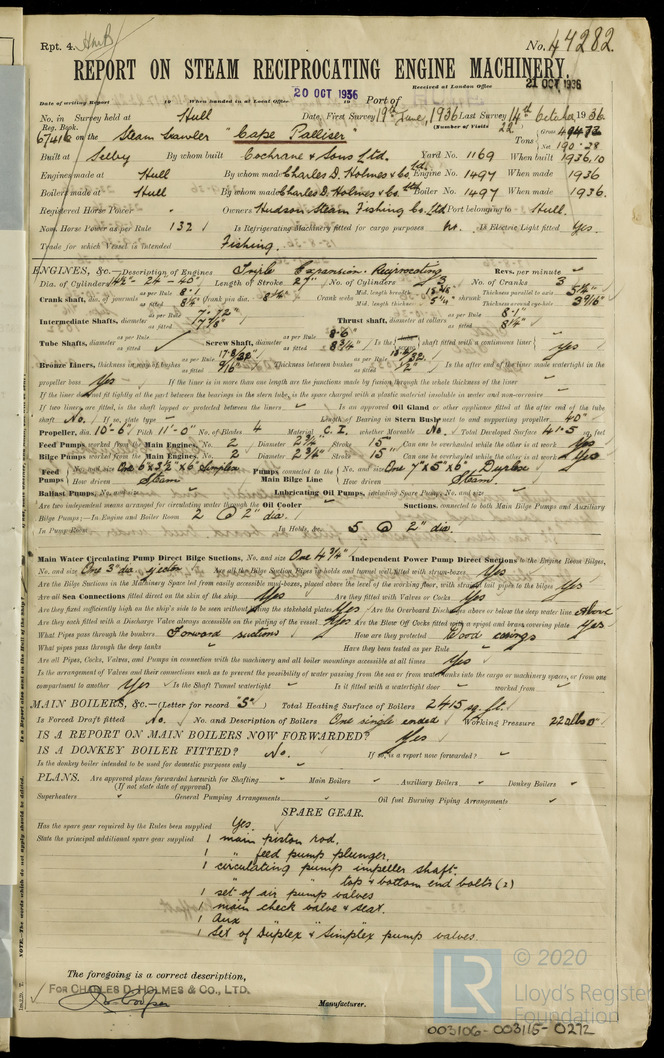 Rpt. 4.
No. 44282.
REPORT ON STEAM RECIPROCATING ENGINE MACHINERY.
Received at London Office 21 OCT 1936
Date of writing Report 19 When handed in at Local Office 20 OCT 1936 19 Port of
No. in Survey held at Hull Date, First Survey 19th June, 1936 Last Survey 14th October 1936
Reg. Book. (Number of Visits 22
67416 on the Steam trawler "Cape Palliser" Tons Gross Net 190.28
Built at Selby By whom built Cochrane & Sons Ltd. Yard No. 1169 When built 1936.10
Engines made at Hull By whom made Charles D. Holmes & Co. Ltd. Engine No. 1497 When made 1936
Boilers made at Hull By whom made Charles D. Holmes & Co. Ltd. Boiler No. 1497 When made 1936.
Registered Horse Power Owners Hudson Steam Fishing Co. Ltd Port belonging to Hull.
Nom. Horse Power as per Rule 132 Is Refrigerating Machinery fitted for cargo purposes No. Is Electric Light fitted Yes
Trade for which Vessel is intended Fishing.
ENGINES, &c.—Description of Engines Triple Expansion Reciprocating Revs. per minute
Dia. of Cylinders 24"- 40" Length of Stroke 27" No. of Cylinders 3 No. of Cranks 3
Crank shaft, dia. of journals as per Rule 8.1 as fitted Crank pin dia. Crank webs Mid. length breadth Mid. length thickness shrunk Thickness parallel to axis Thickness around eye-hole 3 9/16"
Intermediate Shafts, diameter as per Rule as fitted Thrust shaft, diameter at collars as per Rule 8.1" as fitted 8 1/4"
Tube Shafts, diameter as per Rule as fitted Screw Shaft, diameter as per Rule 8.6 as fitted 8 3/4" Is the shaft fitted with a continuous liner yes
Bronze Liners, thickness in way of bushes as per Rule as fitted 9/16" Thickness between bushes as per Rule as fitted 1/2" Is the after end of the liner made watertight in the
propeller boss Yes If the liner is in more than one length are the junctions made by fusion through the whole thickness of the liner
If the liner does not fit tightly at the part between the bearings in the stern tube, is the space charged with a plastic material insoluble in water and non-corrosive
If two liners are fitted, is the shaft lapped or protected between the liners Is an approved Oil Gland or other appliance fitted at the after end of the tube
shaft No. If so, state type Length of Bearing in Stern Bush next to and supporting propeller 40"
Propeller, dia. 10'-6" Pitch 11'-0" No. of Blades 4 Material C.I. whether Moveable No. Total Developed Surface 41.5 sq. feet
Feed Pumps worked from the Main Engines, No. 2 Diameter 2 3/4" Stroke 15" Can one be overhauled while the other is at work Yes
Bilge Pumps worked from the Main Engines, No. 2 Diameter 2 3/4" Stroke 15" Can one be overhauled while the other is at work Yes
Feed Pumps No. and size One 6"x3 1/2"x6" Simplex How driven Steam Pumps connected to the Main Bilge Line No. and size One 7"x5"x6" Duplex How driven Steam.
Ballast Pumps, No. and size Lubricating Oil Pumps, including Spare Pump, No. and size
Are two independent means arranged for circulating water through the Oil Cooler Suctions, connected to both Main Bilge Pumps and Auxiliary
Bilge Pumps;—In Engine and Boiler Room 2 @ 2" dia.
In Pump Room In Holds, &c. 5 @ 2" dia.
Main Water Circulating Pump Direct Bilge Suctions, No. and size One 4 3/4" Independent Power Pump Direct Suctions to the Engine Room Bilges,
No. and size One 3" dia ejector Are all the Bilge Suction Pipes in holds and tunnel well fitted with strum-boxes Yes
Are the Bilge Suctions in the Machinery Space led from easily accessible mud-boxes, placed above the level of the working floor, with straight tail pipes to the bilges Yes
Are all Sea Connections fitted direct on the skin of the ship Yes Are they fitted with Valves or Cocks Yes
Are they fixed sufficiently high on the ship's side to be seen without lifting the stokehold plates Yes Are the Overboard Discharges above or below the deep water line Above
Are they each fitted with a Discharge Valve always accessible on the plating of the vessel Yes Are the Blow Off Cocks fitted with a spigot and brass covering plate Yes
What Pipes pass through the bunkers Forward suctions How are they protected Wood casings
What pipes pass through the deep tanks Have they been tested as per Rule
Are all Pipes, Cocks, Valves, and Pumps in connection with the machinery and all boiler mountings accessible at all times Yes
Is the arrangement of Valves and their connections such as to prevent the possibility of water passing from the sea or from water tanks into the cargo or machinery spaces, or from one
compartment to another Yes Is the Shaft Tunnel watertight Is it fitted with a watertight door worked from
MAIN BOILERS, &c.—(Letter for record "S") Total Heating Surface of Boilers 2415 sq. ft.
Is Forced Draft fitted No. No. and Description of Boilers One single ended Working Pressure
IS A REPORT ON MAIN BOILERS NOW FORWARDED? Yes
IS A DONKEY BOILER FITTED? No. If so, is a report now forwarded?
Is the donkey boiler intended to be used for domestic purposes only
PLANS. Are approved plans forwarded herewith for Shafting Main Boilers Auxiliary Boilers Donkey Boilers
(If not state date of approval)
Superheaters General Pumping Arrangements Oil fuel Burning Piping Arrangements
SPARE GEAR.
Has the spare gear required by the Rules been supplied Yes.
State the principal additional spare gear supplied 1 main piston rod.
1 " feed pump plunger.
1 circulating pump impeller shaft.
" " top & bottom end bolts (2)
1 set of air pump valves
1 main check valve & seat.
1 Aux
1 Set of Duplex & Simplex pump valves.
The foregoing is a correct description,
FOR CHARLES D. HOLMES & CO., LTD.
Manufacturer.
LR
© 2020
Lloyd's Register
Foundation
003106-003115-0272